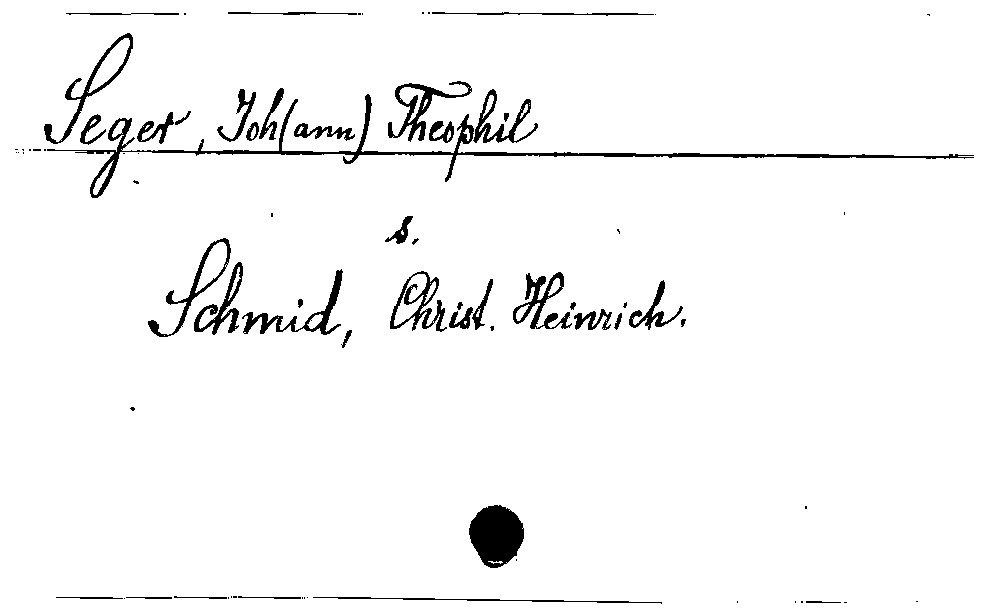 Seger, Joh(ann) Theophil
s.
Schmid, Christ. Heinrich.